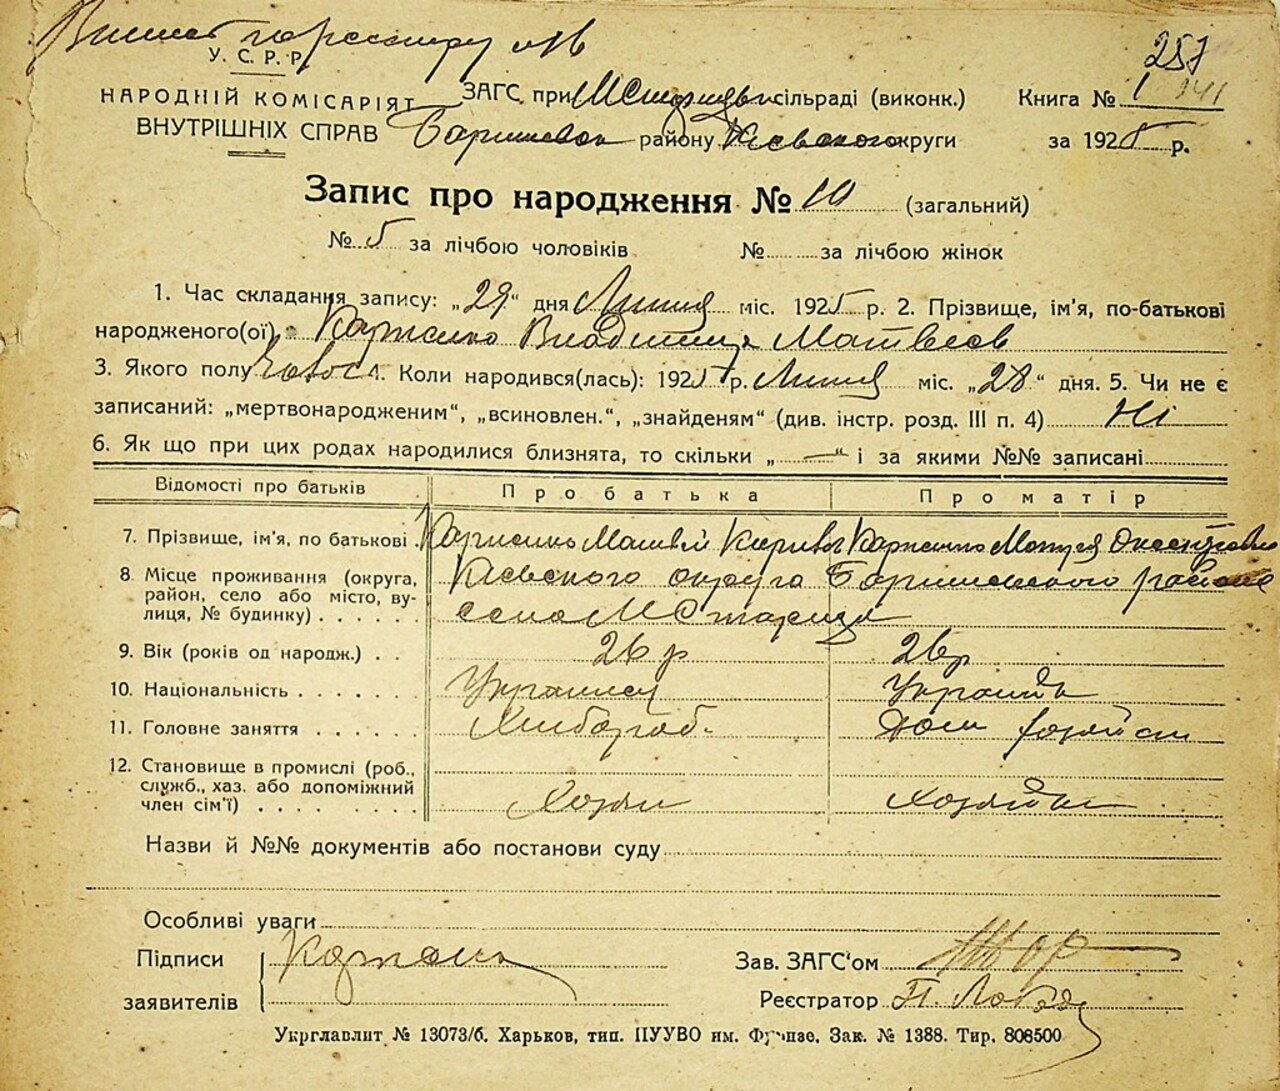 257
У. С. Р. Р.
НАРОДНІЙ КОМІСАРІЯТ
ВНУТРІШНІХ СПРАВ
ЗАГС. при МСтариця сільраді (виконк.)
Баришевск району Києвского округи
Книга № 1 141
за 1925 р.
Запис про народження № 10 (загальний)
№ 5 за лічбою чоловіків № за лічбою жінок
1. Час складання запису: „29“ дня Липня міс. 1925 р. 2. Прізвище, ім'я, по-батькові
народженого(ої) Карженко Владимир Матвеев
3. Якого полу 4. Коли народився(лась): 1925 р. Липня міс. „28“ дня. 5. Чи не є
записаний: „мертвонародженим“, „всиновлен.“, „знайденям“ (див. інстр. розд. III п. 4) Ні
6. Як що при цих родах народилися близнята, то скільки „—“ і за якими №№ записані
Відомості про батьків Про батька Про матір
7. Прізвище, ім'я, по батькові Карженко Матвей Карженко
8. Місце проживання (округа, район, село або місто, вулиця, № будинку) Києвского округа Баришевского района
село МСтариця
9. Вік (років од народж.) 26 р 26 р
10. Національність Українец Українка
11. Головне заняття Хлібороб. Дом хозяйст
12. Становище в промислі (роб., служб., хаз. або допоміжний член сім'ї) Хозяин Хозяйка
Назви й №№ документів або постанови суду
Особливі уваги
Підписи
заявителів
Зав. ЗАГС'ом
Реєстратор П.
Укрглавліт № 13073/б. Харьков, тип. ПУУВО им. Фрунзе. Зак. № 1388. Тир. 808500